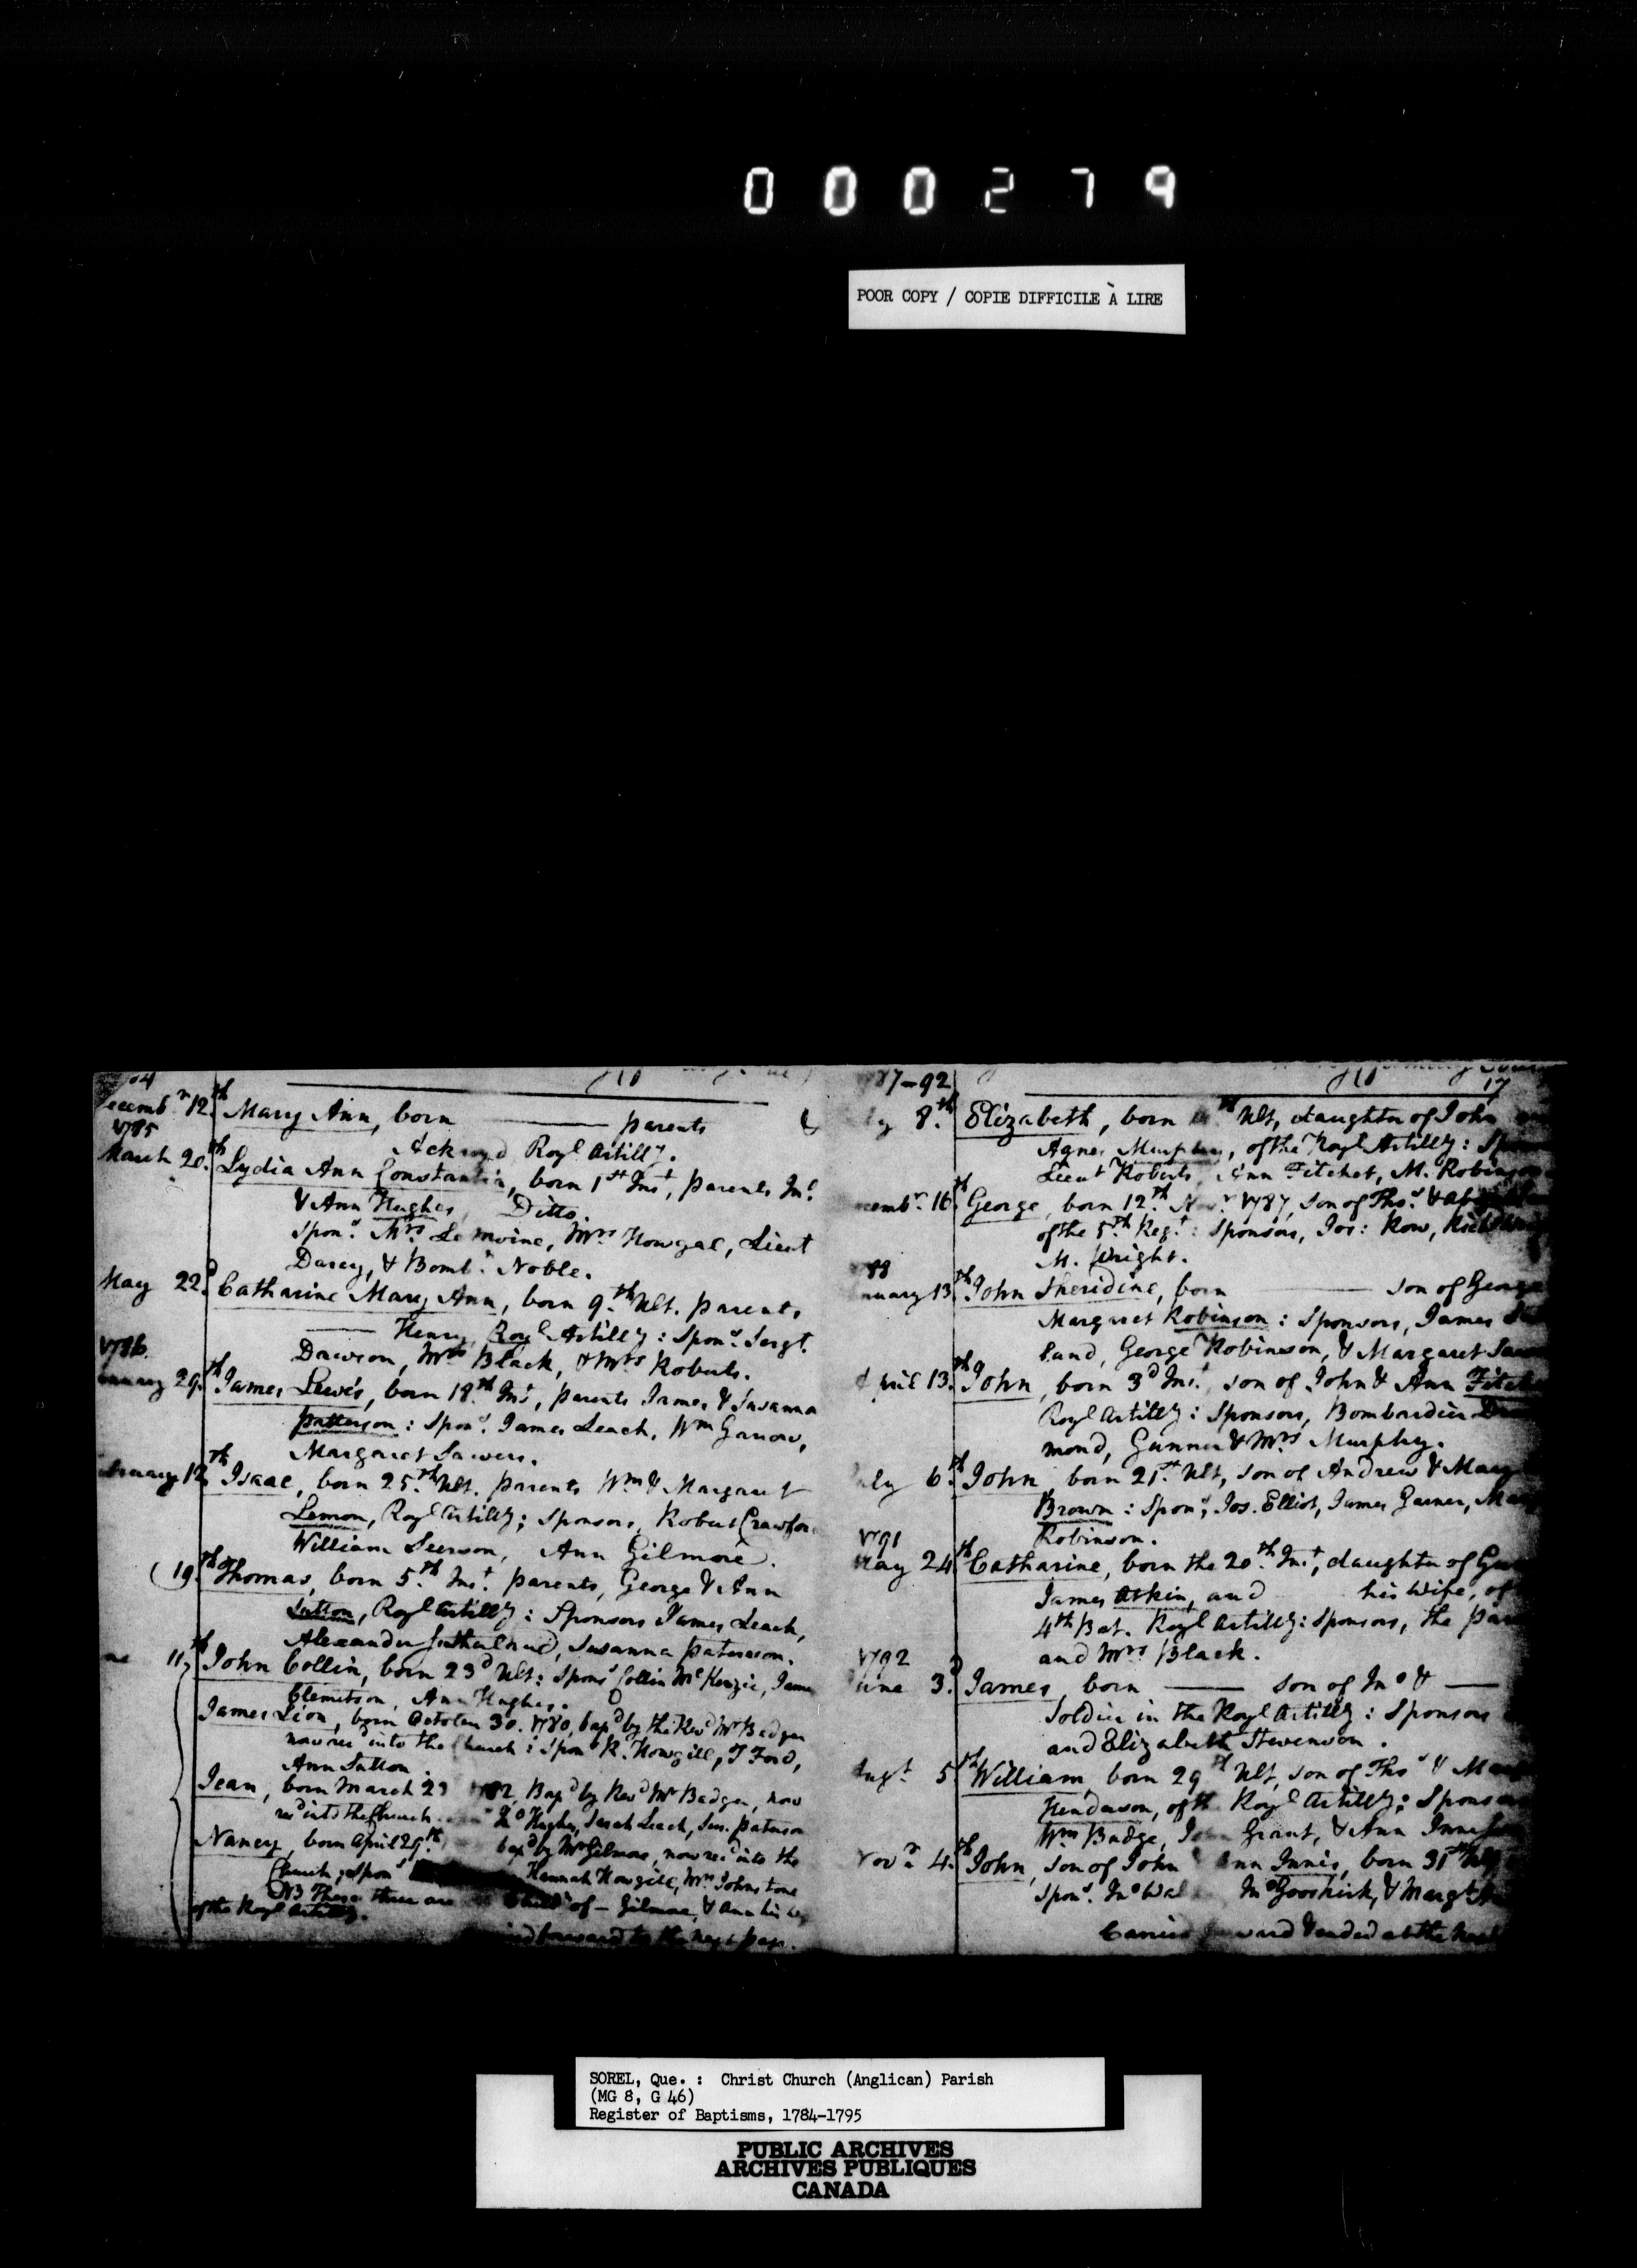 000279
POOR COPY / COPIE DIFFICILE À LIRE
Decembr 12th Mary Ann, born ——— parents &
1785
Ackroyd Royl Artilly.
March 20th Lydia Ann Constantia, born 1st Inst, parents Jno
& Ann Hughes, Ditto.
Spons. Mrs Lemoine, Mrs Howgal, Lieut
Darcy, & Bombr Noble.
May 22d Catharine Mary Ann, born 9th Ult. parents,
——— Henry, Royl Artilly: Spons. Sergt.
Dawson, Mrs Black, & Mrs Roberts.
1786.
29th James Lewis, born 18th Inst, parents James & Susanna
Patterson: Spons. James Leach, Wm
Margaret Sawers.
12th Isaac, born 25th Ult. parents Wm & Margaret
Lemon, Royl Artilly; Sponsors, Robert Crawfor
William Leerson, Ann Gilmore.
(19th Thomas, born 5th Inst. parents, George & Ann
Sutton, Royl Artilly: Sponsors James Leach,
Alexander Sutherland, Susanna Paterson.
11th John Collin, born 23d Ult: Spons Collin McKenzie, James
Clemitson, Ann Hughes.
James Lion, born October 30. 1780, bapd by the Revd Mr Badger
now recd into the Church: Spons R. Howgill, T Ford,
Ann Sutton.
Jean, born March 23 1782, Bapd by Revd Mr Badger, now
recd into the Church. Jno Hughes, Sarah Leach, Sus. Paterson
Nancy, born April 29th bapd by Mr Gilmore, now recd into the
Church; Spons Hannah Howgill, Mrs Johnstone
NB These three are Childn of – Gilmore, & Ann his
of the Royl Artilly.
forward to the next page.
87–92
17
8th Elizabeth, born Ult, daughter of John
Agnes Murphy, of the Royl Artilly:
Lieut Roberts, Ann Fitchet, M. Robinson
16th George, born 12th Novr 1787, son of Thos &
of the 5th Regt: Sponsors, Jos: Row,
M. Wright.
88
13th John Sheridine, born ——— son of George
Margaret Robinson: Sponsors, James
land, George Robinson, & Margaret
April 13th John, born 3d Inst, son of John & Ann
Royl Artilly: Sponsors, Bombardier
mond, Gunner & Mrs Murphy.
6th John born 21st Ult, son of Andrew & Mary
Brown: Spons, Jos. Elliot, James Garner,
Robinson.
1791
May 24th Catharine, born the 20th Inst, daughter of
James Atkin, and his Wife, of
4th Bat. Royl Artilly: Sponsors, the
and Mrs Black.
1792
June 3d James, born —— son of Jno & ——
Soldier in the Royl Artilly: Sponsors
and Elizabeth Stevenson.
Augt 5th William, born 29th Ult, son of Thos &
Henderson, of the Royl Artilly; Sponsors
Wm Budge, John Grant, & Ann
Novr 4th John, son of John Ann Innis, born 31st Ult
Spons. Jno Jno Gooskirk, & Margt
Carried forward & ended at the
SOREL, Que. : Christ Church (Anglican) Parish
(MG 8, G 46)
Register of Baptisms, 1784-1795
PUBLIC ARCHIVES
ARCHIVES PUBLIQUES
CANADA